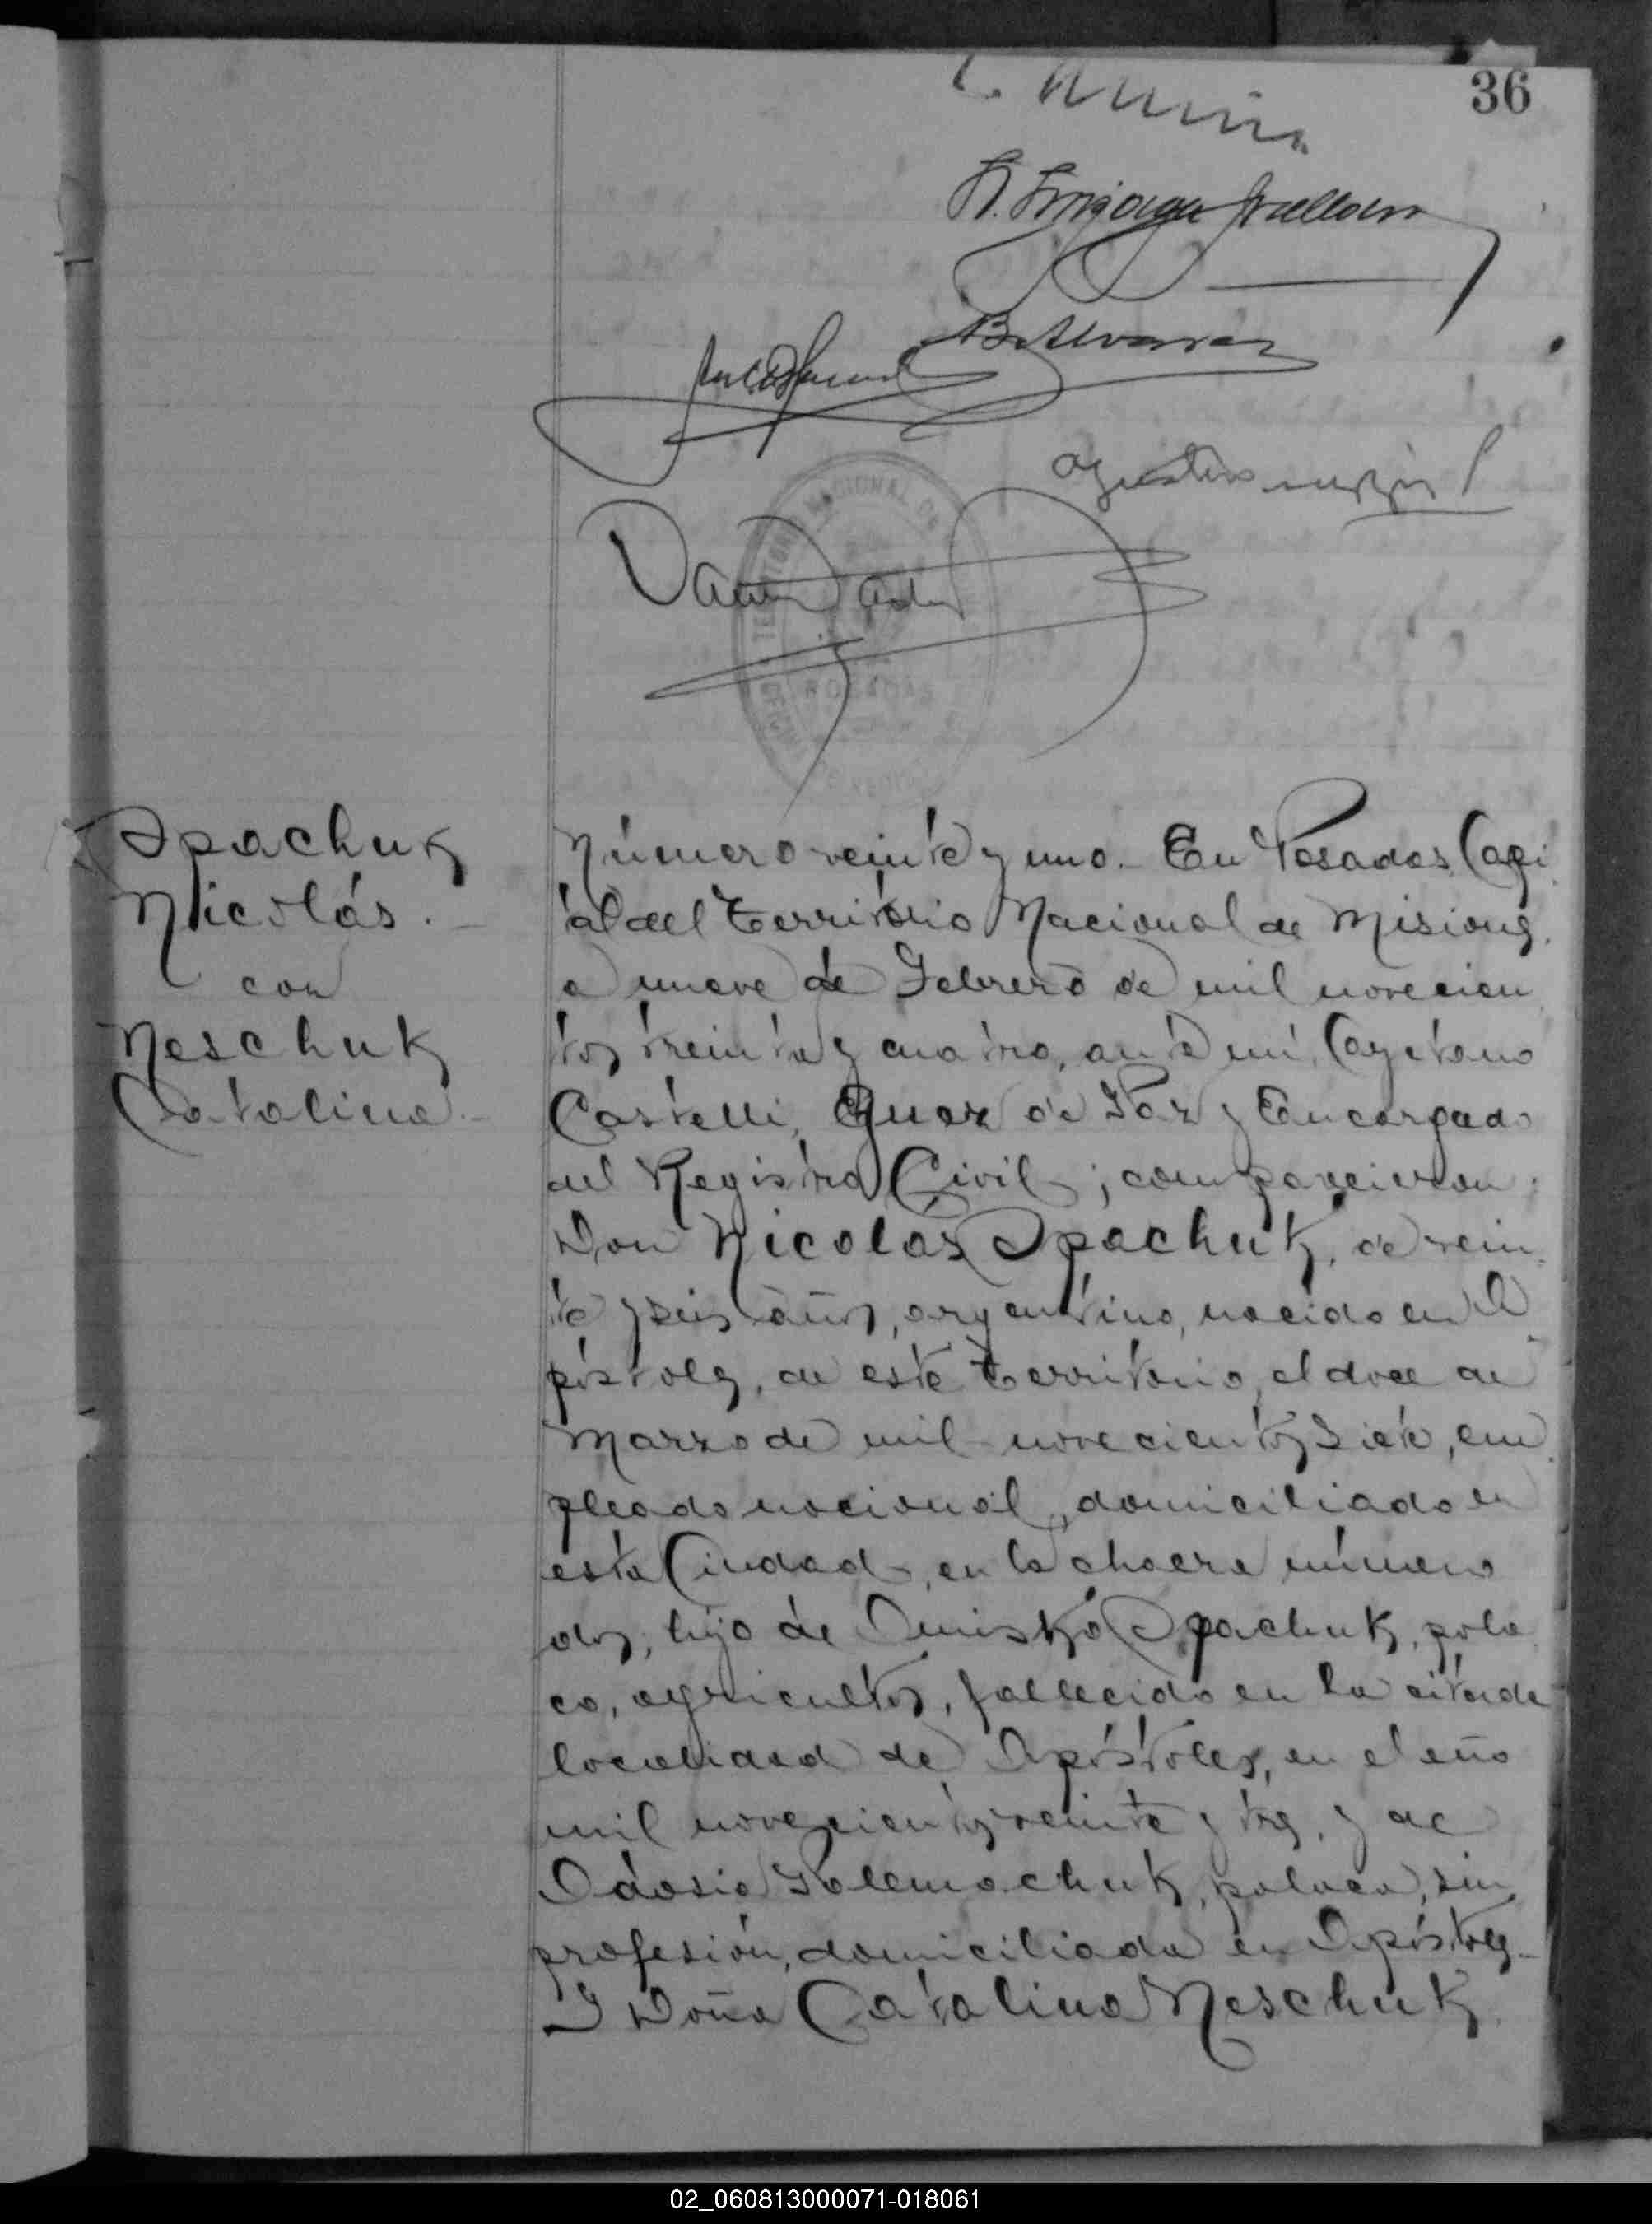 36
Opachuk
Nicolás.
con
Neschuk
Catalina.
Número veinte y uno. En Posadas, Capi
tal del Territorio Nacional de Misiones,
a nueve de Febrero de mil novecien
tos treinta y cuatro, ante mí, Cayetano
Castelli, Juez de Paz y Encargado
del Registro Civil; comparecieron:
Don Nicolás Opachuk, de vein
te y seis años, argentino, nacido en A
póstoles, de este Territorio, el doce de
Marzo de mil novecientos siete, em
pleado nacional, domiciliado en
esta Ciudad, en la chacra número
dos, hijo de Opachuk, pola
co, agricultor, fallecido en la citada
localidad de Apóstoles, en el año
mil novecientos veinte y tres, y de
polaca, sin
profesión, domiciliada en Apóstoles.
Y Doña Catalina Neschuk,
POSADAS
02_060813000071-018061